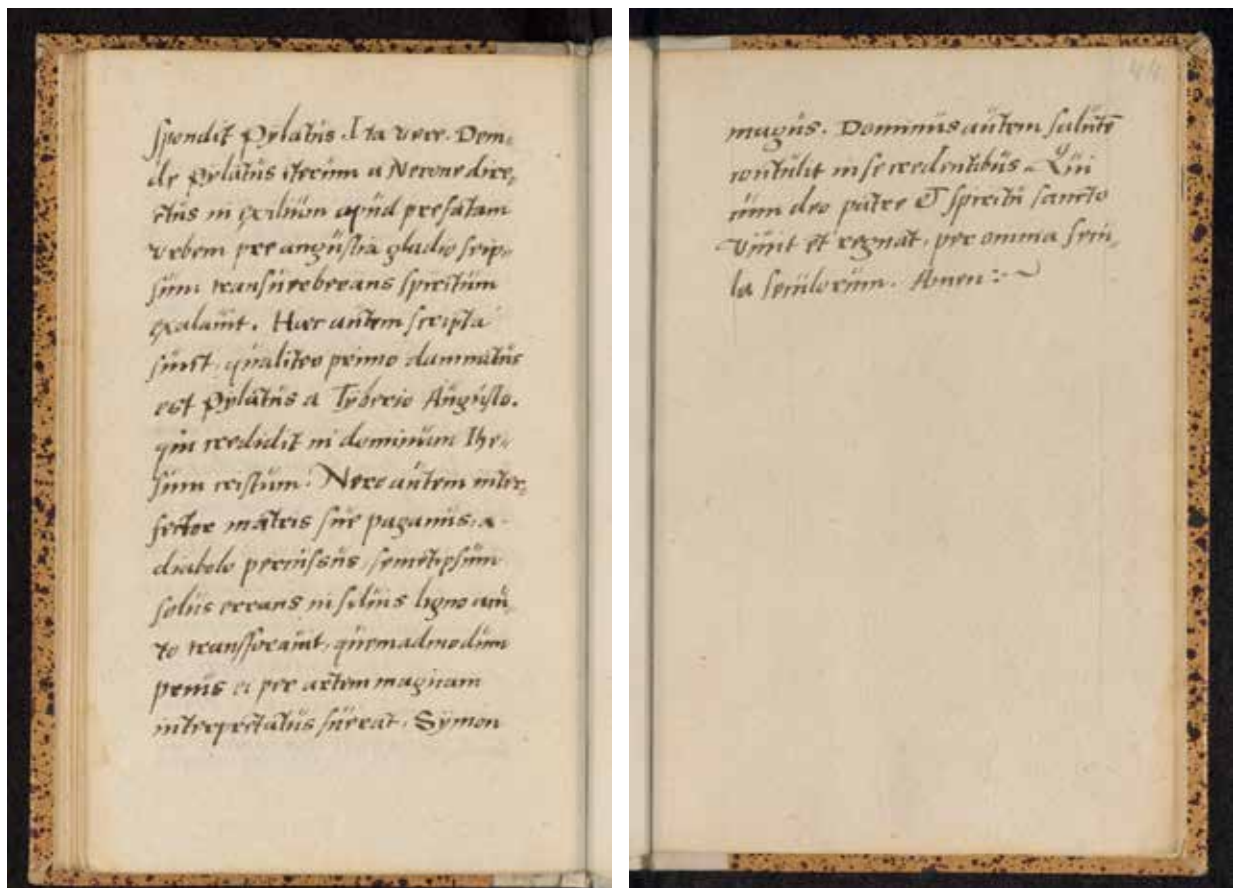 spondit Pylatus. Ita vere. Dein„
de Pylatus iterum a Nerone dire„
ctus in exilium apud prefatam
urbem pre angustia gladio seip„
sum transverberans spiritum
exalauit. Haec autem scripta
sunt, qualiter primo damnatus
est Pylatus a Tyberio Augusto.
qui credidit in dominum Ihe„
sum cristum. Nero autem inter„
fector matris sue paganus, a
diabolo percussus, semetipsum
solus errans in siluis ligno acu„
to transforauit, quemadmodum
prius ei per artem magicam
interpretatus fuerat, Symon
44
magus. Dominus autem salutē
contulit in se credentibus. Qui
cum deo patre Et spiritu sancto
viuit et regnat, per omnia secu„
la seculorum. Amen :~